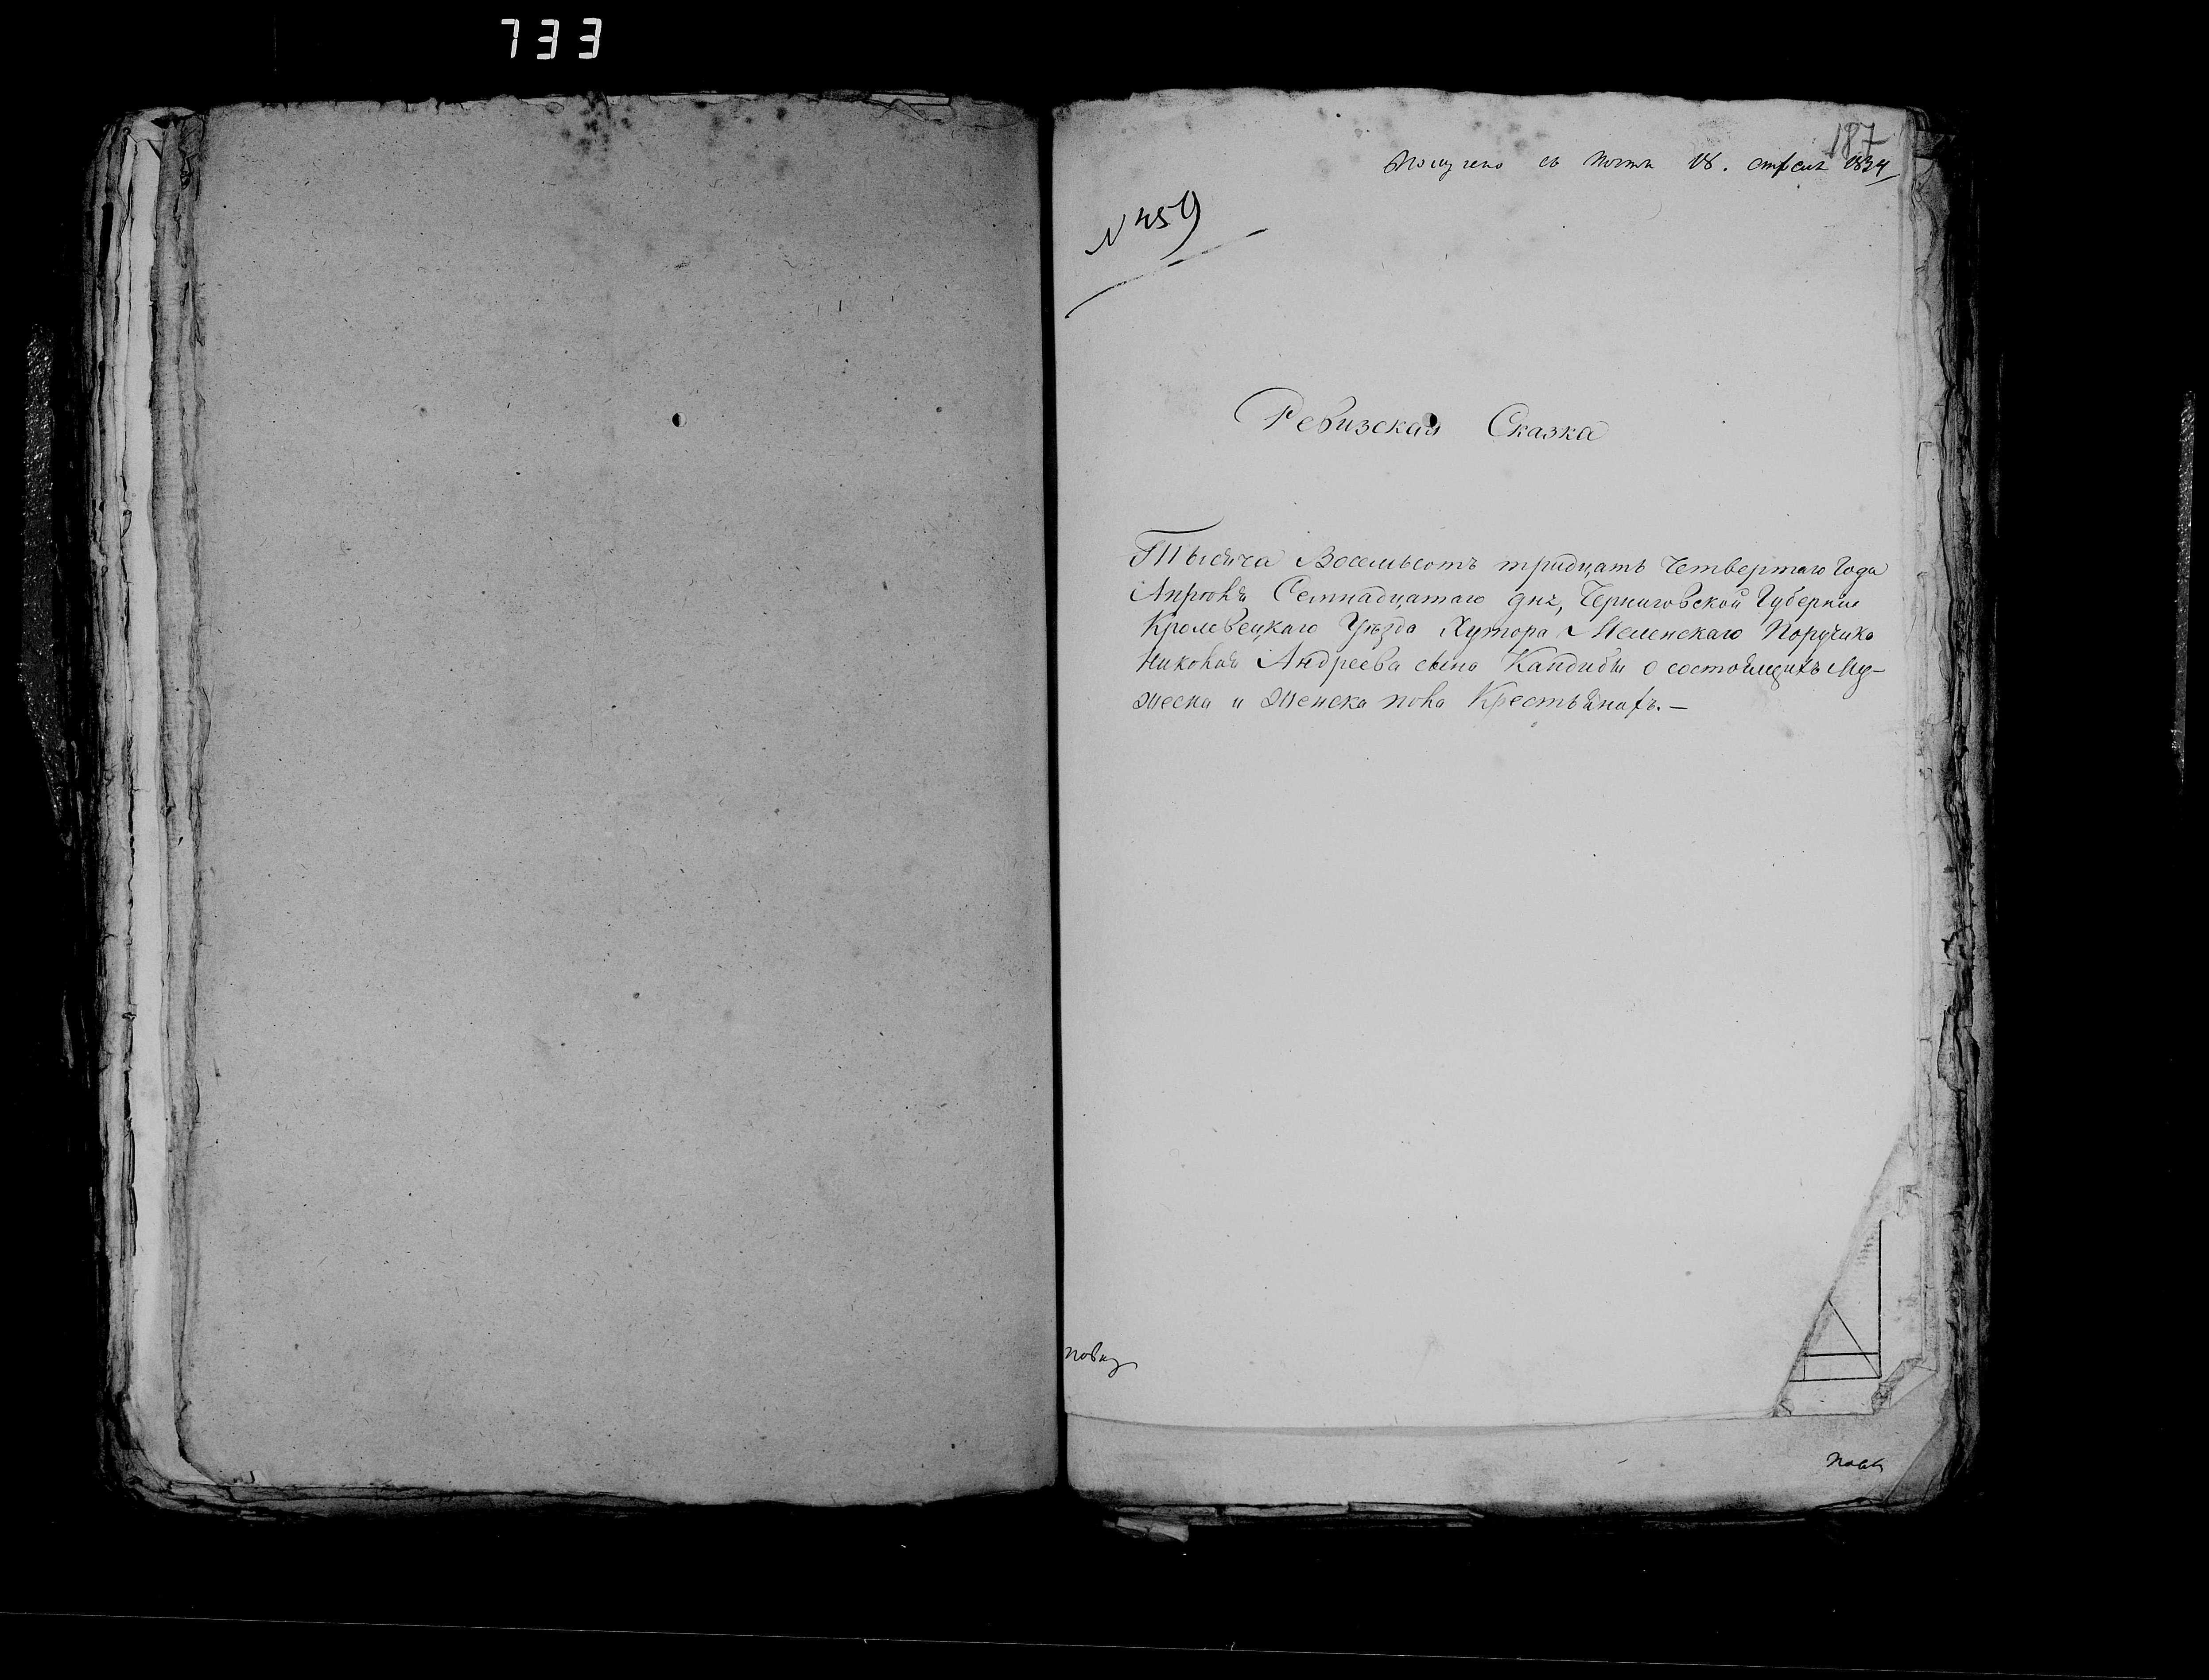 733
187
Получено съ почты 18. апреля 1834
N 459
Ревизская Сказка
Тысяча Восемьсотъ тридцать Четвертаго Года
Апреля Семнадцатаго дня, Черниговской Губернии
Кролевецкаго Уезда Хутора Поручика
Николая Андреева сына Кандибы о состоящихъ Му-
жеска и женска пола Крестьянахъ. —